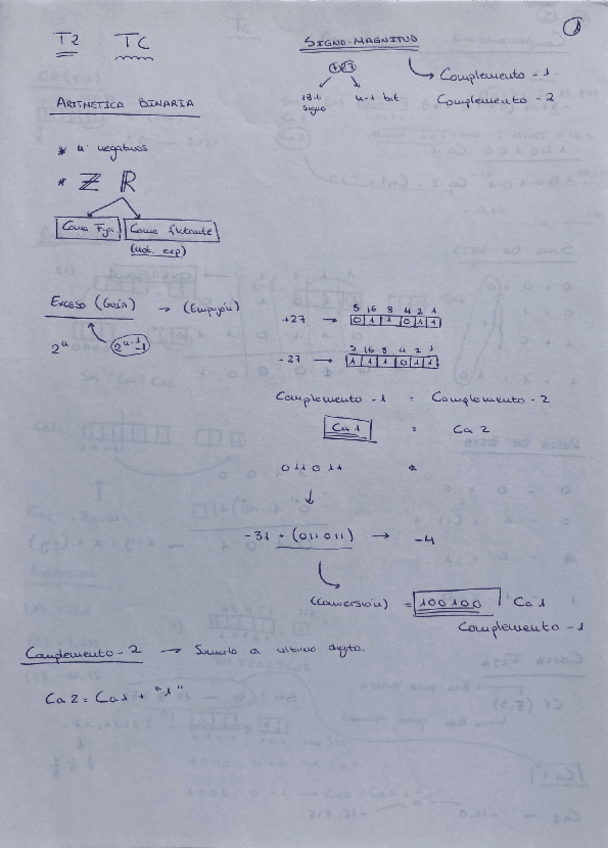 ①
T2 TC
SIGNO-MAGNITUD
+27
1 Bit signo
n-1 bit
Complemento-1
Complemento-2
ARITMETICA BINARIA
* nº negativos
* Z R
Coma Fija
Coma flotante
(not. exp)
EXCESO (GUÍA) → (Empujón)
2ⁿ 2ⁿ⁻¹-1
S 16 8 4 2 1
+27 → 0 1 1 0 1 1
S 16 8 4 2 1
-27 → 1 1 1 0 1 1
Complemento-1 = Complemento-2
Ca1 = Ca2
011011
↓
-31 + (011011) → -4
(Conversión) = 100100 Ca1
Complemento-1
Complemento-2 → Sumarlo a ultimo dígito.
Ca2 = Ca1 + "1"